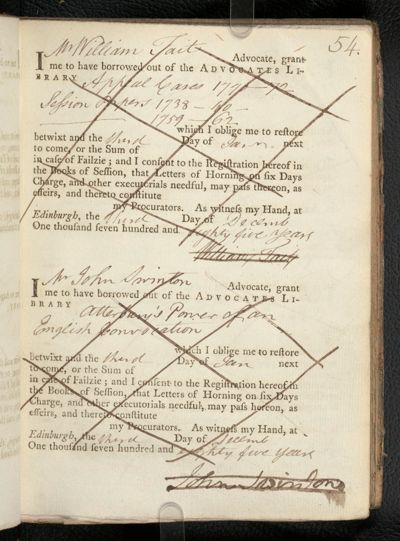 54.
I Mr William Tait Advocate, grant
me to have borrowed out of the ADVOCATES LI-
BRARY Appeal Cases
Session Papers 1738 – 40
1759 – 62
which I oblige me to reſtore
betwixt and the third Day of Jan. next
to come, or the Sum of
in caſe of Failzie ; and I conſent to the Regiſtration hereof in
the Books of Seſſion, that Letters of Horning on ſix Days
Charge, and other executorials needful, may paſs thereon, as
effeirs, and thereto conſtitute
my Procurators. As witneſs my Hand, at
Edinburgh, the third Day of Decemb
One thouſand ſeven hundred and eighty five Years
William Tait
I Mr John Swinton Advocate, grant
me to have borrowed out of the ADVOCATES LI-
BRARY Atterbury's Power of an
English Convocation
which I oblige me to reſtore
betwixt and the third Day of Jan next
to come, or the Sum of
in caſe of Failzie ; and I conſent to the Regiſtration hereof in
the Books of Seſſion, that Letters of Horning on ſix Days
Charge, and other executorials needful, may paſs hereon, as
effeirs, and thereto conſtitute
my Procurators. As witneſs my Hand, at
Edinburgh, the third Day of Decemb
One thouſand ſeven hundred and eighty five Years
John Swinton